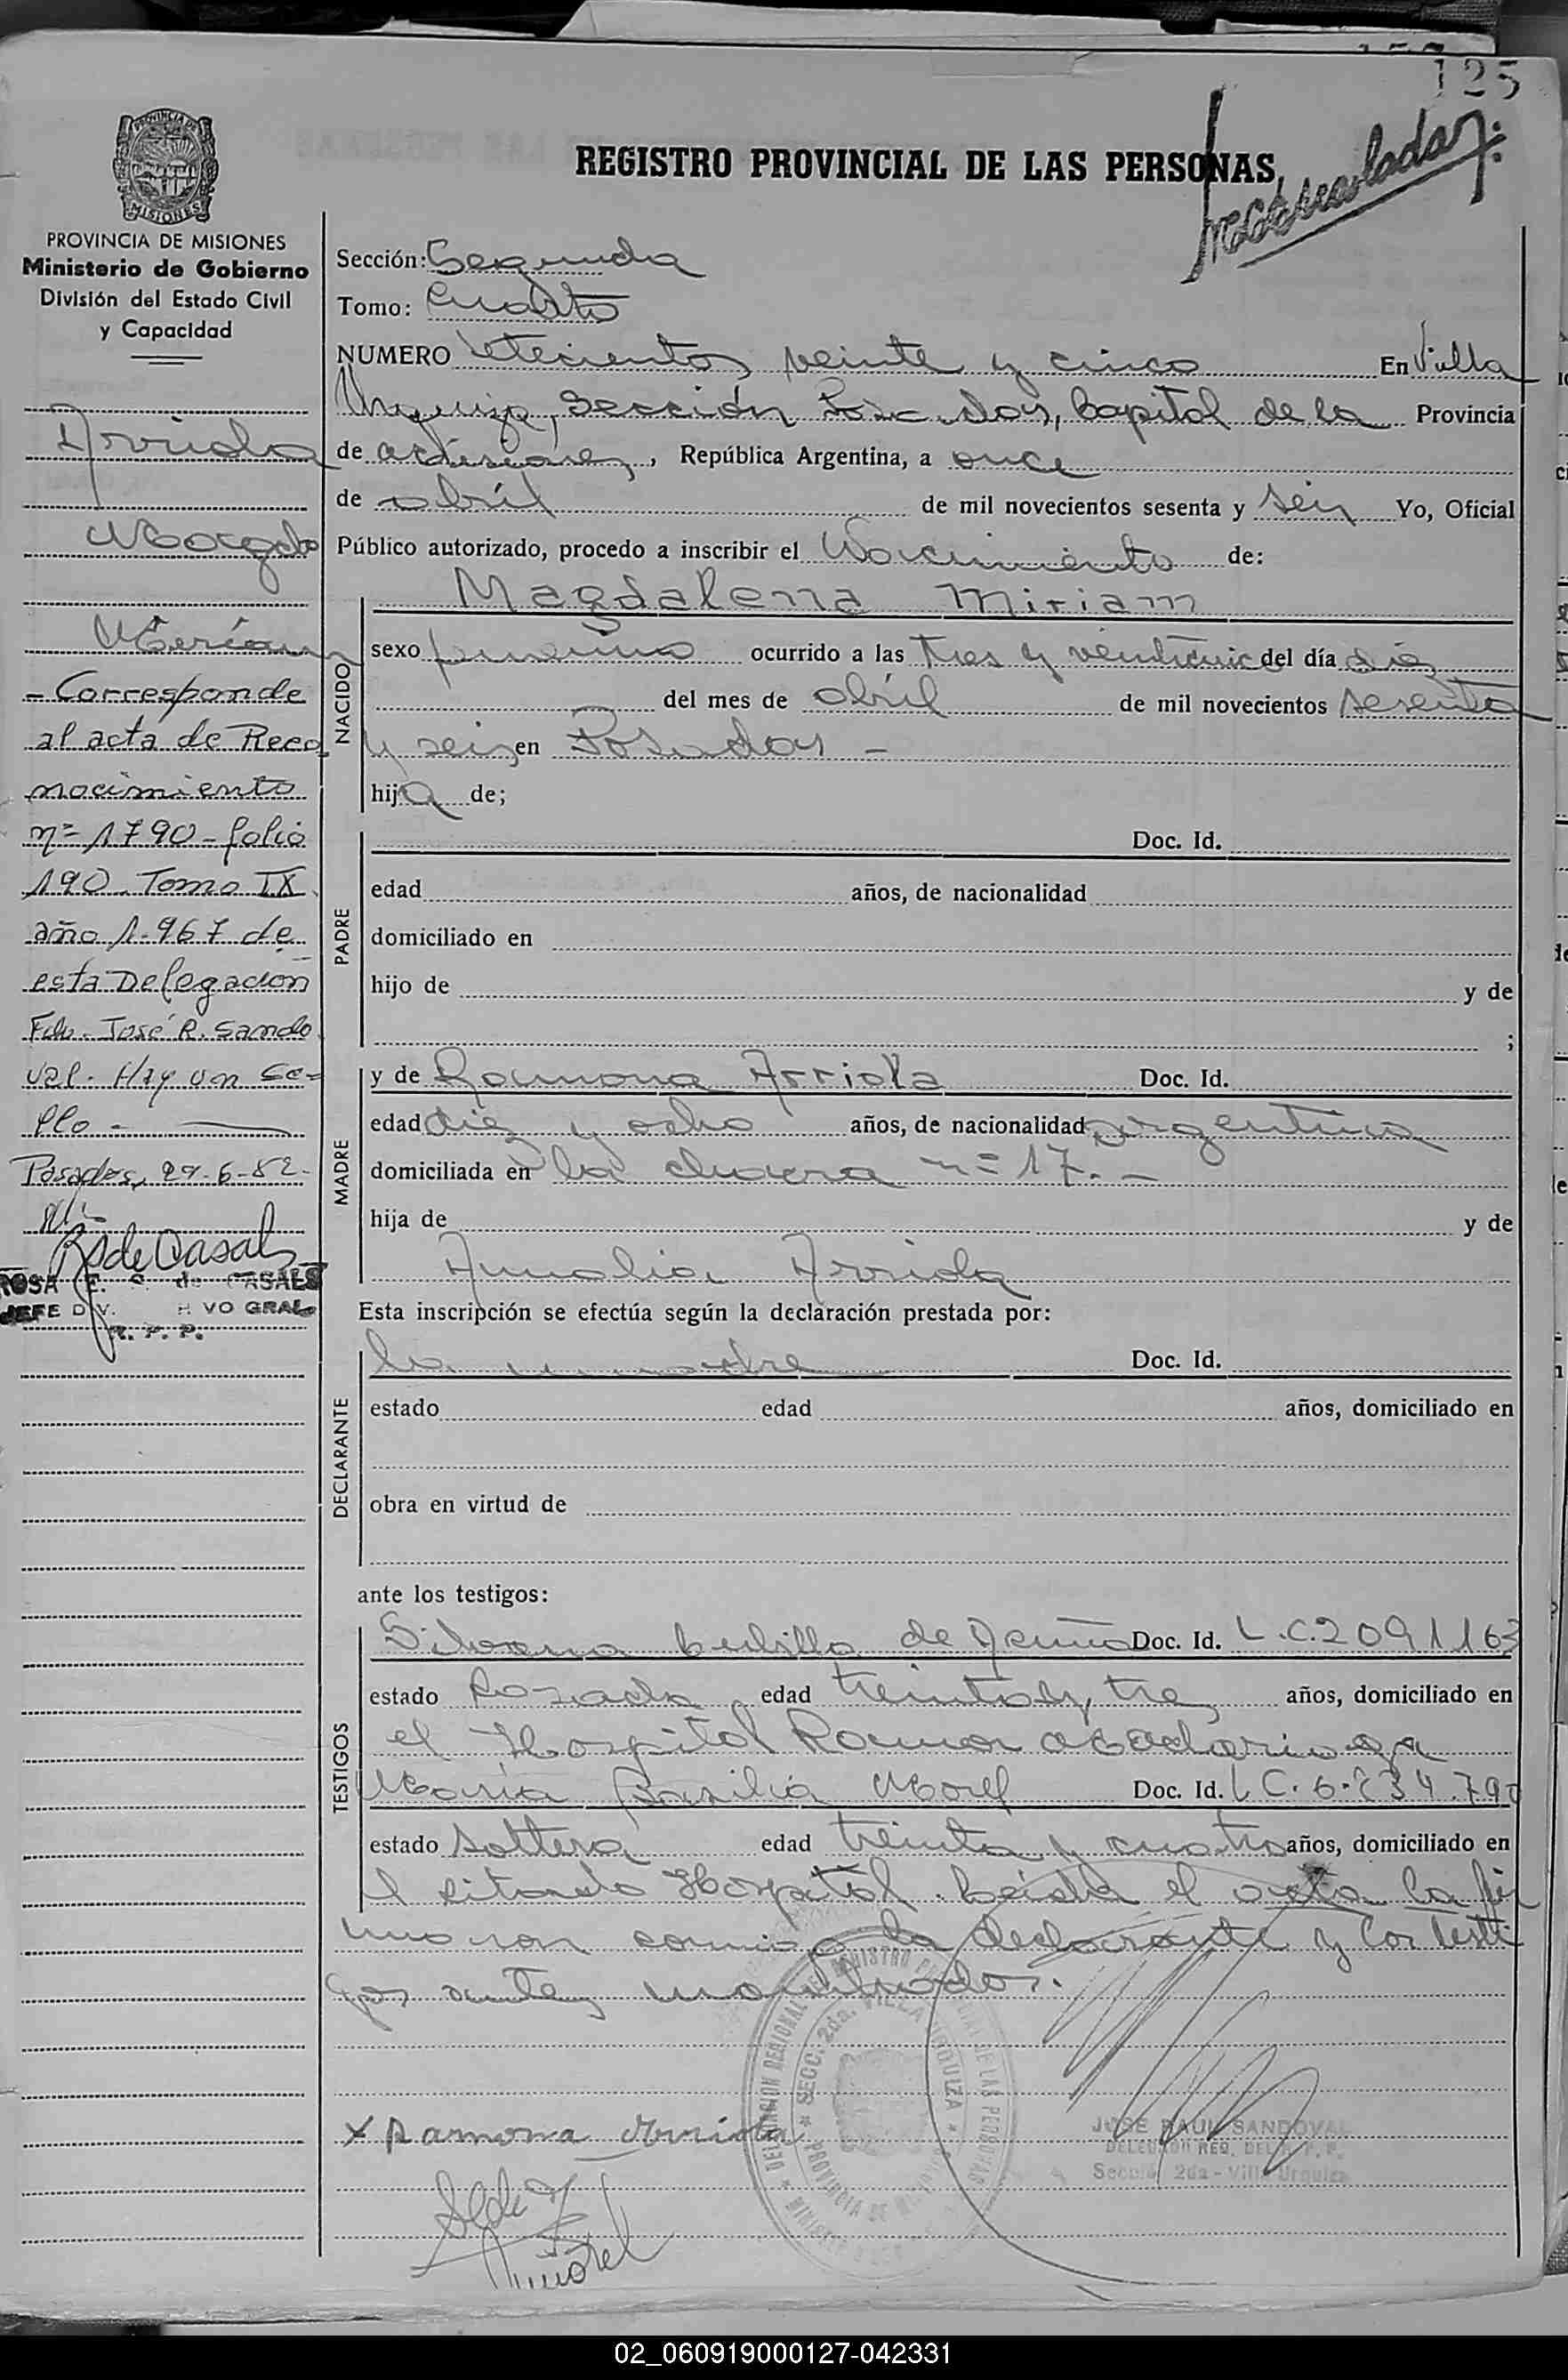 125
REGISTRO PROVINCIAL DE LAS PERSONAS
PROVINCIA DE
MISIONES
PROVINCIA DE MISIONES
Ministerio de Gobierno
División del Estado Civil
y Capacidad
Arriola
Magda
Miriam
- Corresponde
al acta de Reco
nocimiento
n= 1790 - folio
190. Tomo IX
año 1.967 de
esta Delegacion
Fdo. José R. Sando
val. Hay un Se=
llo -
Posadas, 29-6-82.
R de Casals
ROSA E. de CASALS
JEFE DIV. VO GRAL
R. P. P.
Sección: Segunda
Tomo: Cuarto
NUMERO setecientos veinte y cinco En Villa
Urquiza, Sección Posadas, Capital de la Provincia
de Misiones, República Argentina, a once
de abril de mil novecientos sesenta y seis Yo, Oficial
Público autorizado, procedo a inscribir el Nacimiento de:
NACIDO
Magdalena Miriam
sexo femenino ocurrido a las tres y del día diez
del mes de abril de mil novecientos sesenta
y seis en Posadas -
hija de;
PADRE
Doc. Id.
edad años, de nacionalidad
domiciliado en
hijo de y de
;
MADRE
y de Ramona Arriola Doc. Id.
edad diez y ocho años, de nacionalidad argentina
domiciliada en la chacra n= 17. -
hija de y de
Amalia Arriola
Esta inscripción se efectúa según la declaración prestada por:
DECLARANTE
la madre Doc. Id.
estado edad años, domiciliado en
obra en virtud de
ante los testigos:
TESTIGOS
Silvana de Doc. Id. L.C. 2091163
estado Casada edad treinta y tres años, domiciliado en
el Hospital Ramon Madariaga
María Basilia Morel Doc. Id. L C. 6.234.790
estado Soltera edad treinta y cuatro años, domiciliado en
el citado Hospital. Leída el acta la fir
maron conmigo la declarante y los testi
gos antes nombrados.
DELEGACION REGIONAL DEL REGISTRO PROVINCIAL DE LAS PERSONAS
SECC. 2da. VILLA URQUIZA
PROVINCIA DE MISIONES
x Ramona Arriola
Morel
JOSE RAUL SANDOVAL
DELEGADO REG. DEL R. P. P.
Sección 2da - Villa Urquiza
02_060919000127-042331